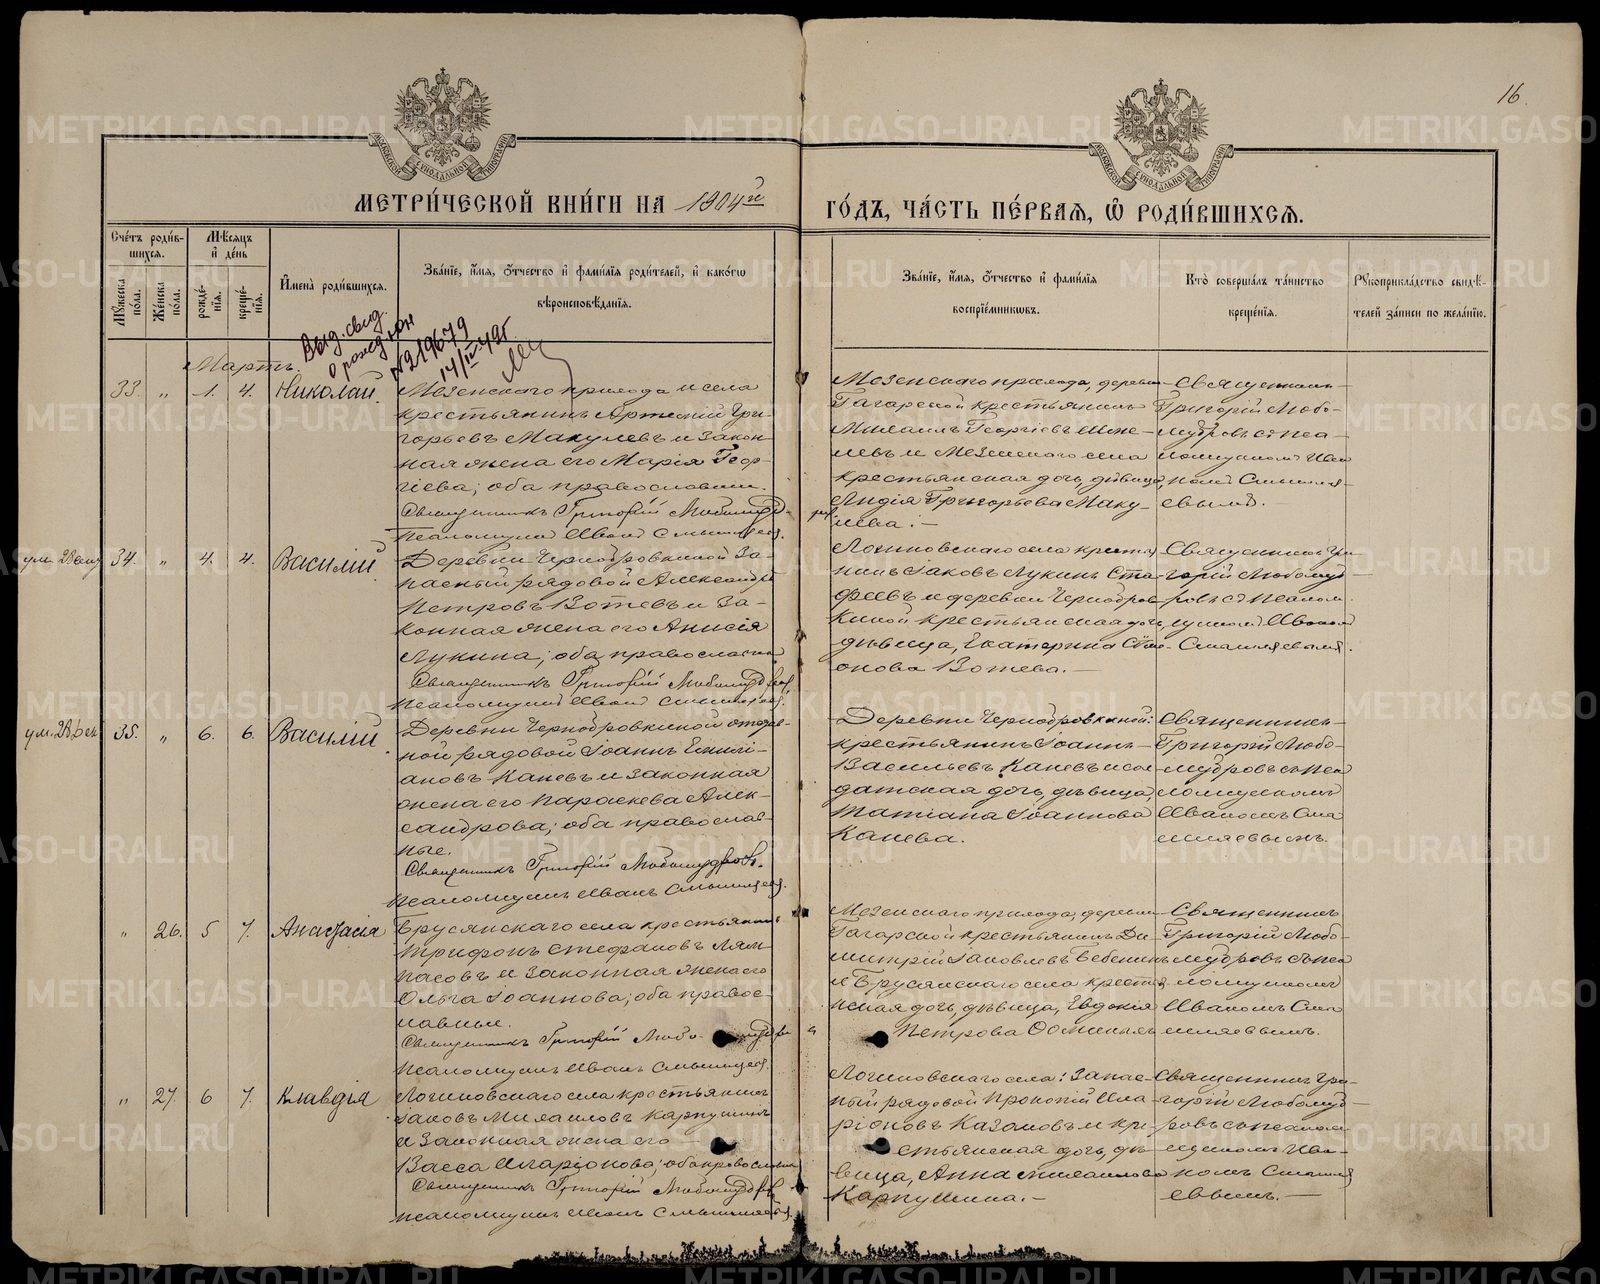 16
МЕТРИ́ЧЕСКОЙ КНИ́ГИ НА 1904й ГО́ДЪ, ЧА́СТЬ ПЕ́РВАЯ, Ѡ҆ РОДИ́ВШИХСЯ.
Сче́тъ роди́в-
шихся.
Мꙋ́жеска по́ла.
Же́нска по́ла.
Мѣ́сяцъ и҆ де́нь
рожде́-
нїя.
креще́-
нїя.
И҆мена̀ роди́вшихся.
Зва́нїе, и҆́мя, ѻ҆́тчество и҆ фами́лїя роди́телей, и҆ како́гѡ
вѣроисповѣ́данїя.
Зва́нїе, и҆́мя, ѻ҆́тчество и҆ фами́лїя
воспрїе́мникѡвъ.
Кто̀ соверша́лъ та́инство
креще́нїя.
Рꙋкоприкла́дство свидѣ́-
телей за́писи по жела́нїю.
Выд. свид.
о рожд.
№219679
14/IV-49г
Мартъ.
33. " 1. 4. Николай.
Мезенскаго прихода и села
крестьянинъ Артемий Гри-
горьевъ Макулевъ и закон-
ная жена его Марія Геор-
гіева; оба православны.
Священникъ Григорій Любомудр
Псаломщик Иван
Мезенскаго прихода, деревни
Гагарской крестьянинъ
Михаилъ Георгіевъ
левъ и Мезенскаго села
крестьянская дочь, дѣвица,
Лидія Григорьева Маку-
лева.-
Священникъ
Григорій Любо-
мудровъ съ пса-
ломщиком Ива
ном Смышля-
евымъ.
ум. 28
34. " 4. 4. Василій
Деревни Чернобровкиной за-
пасный рядовой Александръ
Петровъ Зотевъ и за-
конная жена его Анисія
Лукина; оба православны
Священникъ Григорій Любомудров
Псаломщик Иван
Логиновскаго села крестья
нинъ Іаковъ Лукинъ
феевъ и деревни Чернобров
киной крестьянская дочь,
дѣвица, Екатерина
онова Зотева.-
Священникъ Гри
горій Любомуд
ровъ съ псалом
щиком Иваном
Смышляевымъ.
ум. 28
35. " 6. 6. Василій
Деревни Чернобровкиной
ной рядовой Іоаннъ
ановъ Каневъ и законная
жена его Параскева Алек-
сандрова; оба православ-
ные.
Священникъ Григорій Любомудровъ.
Псаломщик Иванъ
Деревни Чернобровкиной:
крестьянинъ Іоаннъ
Васильевъ Каневъ и сол
датская дочь, дѣвица,
Татіана Іоаннова
Канева.
Священникъ
Григорій Любо-
мудровъ съ пса
ломщикомъ
Иваномъ Смы
шляевымъ.
" 26. 5 7. Анастасія
Брусянскаго села крестьянинъ
Трифонъ Стефановъ Лям
пасовъ и законная жена его
Ольга Іоаннова; оба правос-
лавные.
Священникъ Григорій Любо
Псаломщик Иванъ
Мезенскаго прихода, деревни
Гагарской крестьянинъ Ди-
митрій Іаковлевъ Бебенинъ
и Брусянскаго села кресть
янская дочь, дѣвица, Евдокія
Петрова
Священникъ
Григорій Любо-
мудровъ съ пса
ломщикомъ
Иваномъ Смы
шляевымъ.
" 27. 6 7. Клавдія
Логиновскаго села крестьянинъ
Іаковъ Михаиловъ Карпушинъ
и законная жена его
Васса Иларіонова; оба православны
Священникъ Григорій Любомудров
псаломщик Иван
Логиновскаго села: запас-
ный рядовой Прокопій Ила-
ріоновъ Казаковъ и кре
стьянская дочь, дѣ-
вица, Анна Михаилова
Карпушина.-
Священникъ Гри-
горій Любомуд
ровъ съ псалом
щиком Ива-
номъ Смышля
евымъ.-
METRIKI.GASO-URAL.RU